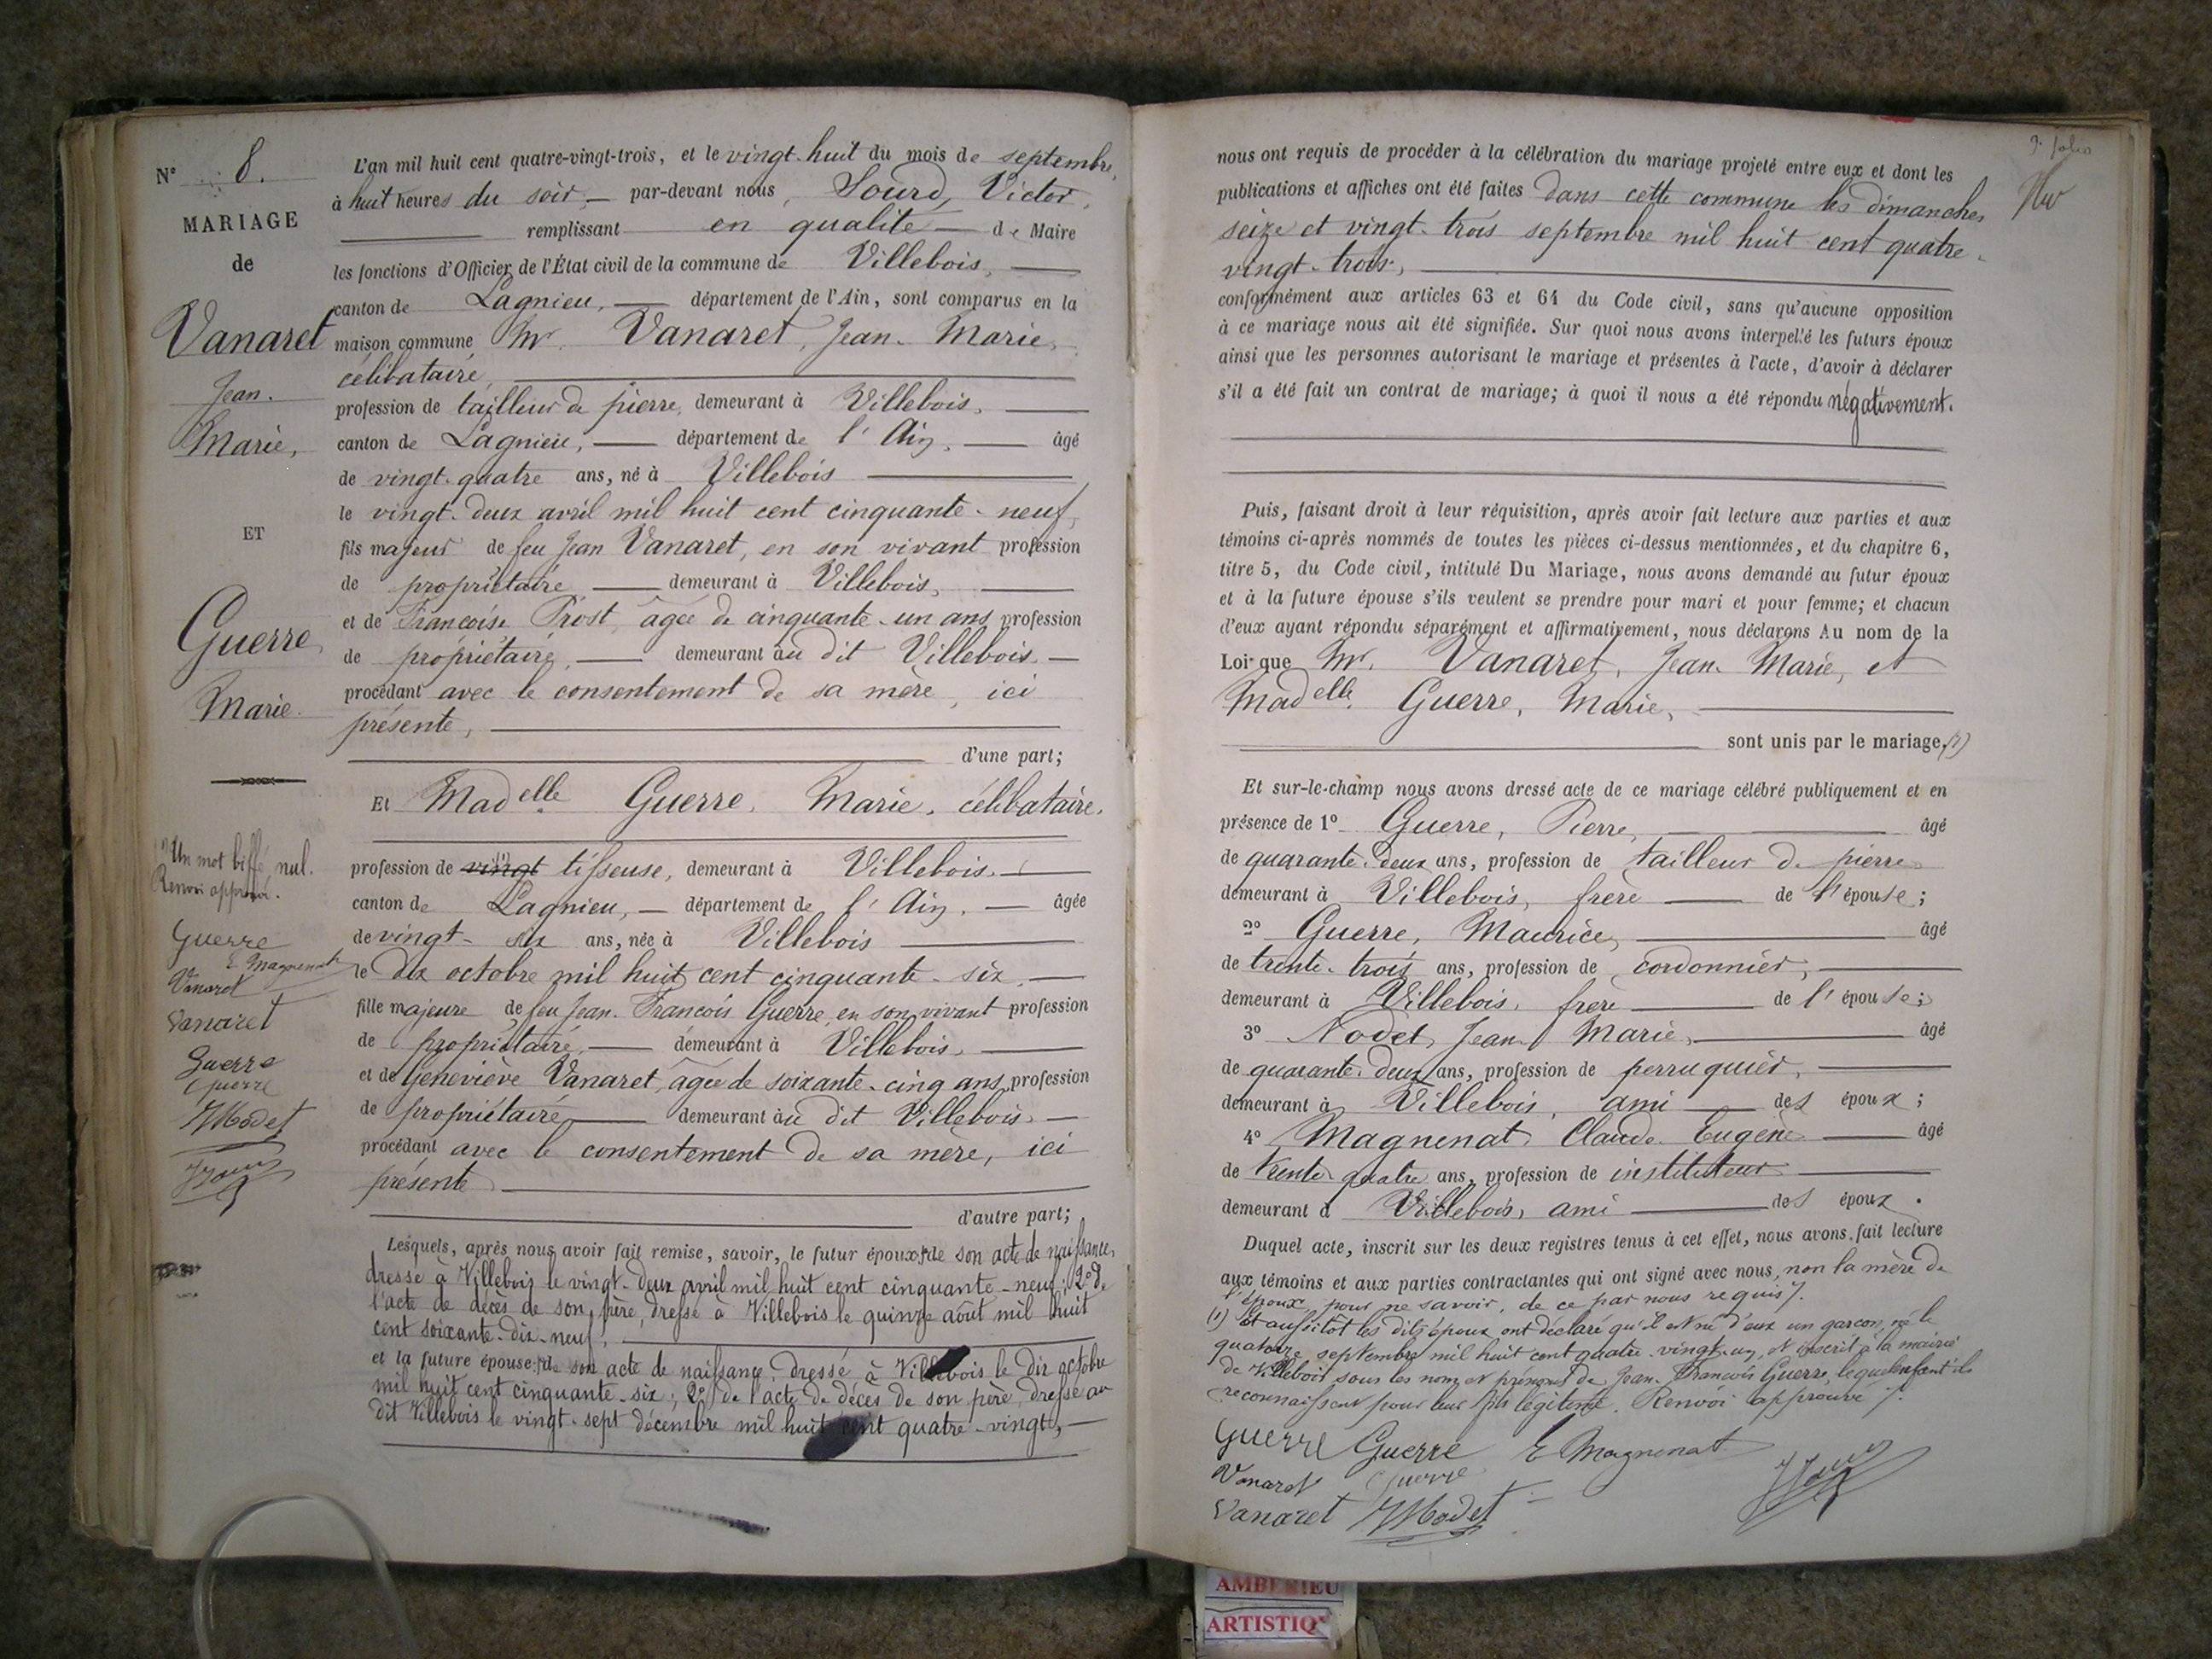 N° 8.
MARIAGE
de
Vanaret
Jean-
Marie,
ET
Guerre
Marie.
(1) Un mot biffé nul.
Renvoi approuvé.
Guerre
E Magnenat
Vanaret
Vanaret
Guerre
Guerre
JModet
L'an mil huit cent quatre-vingt-trois, et le vingt-huit du mois de septembre,
à huit heures du soir, par-devant nous, Sourd, Victor,
remplissant en qualité de Maire
les fonctions d'Officier de l'État civil de la commune de Villebois,
canton de Lagnieu, département de l'Ain, sont comparus en la
maison commune Mr. Vanaret, Jean-Marie,
célibataire,
profession de tailleur de pierre, demeurant à Villebois,
canton de Lagnieu, département de l'Ain, âgé
de vingt-quatre ans, né à Villebois
le vingt-deux avril mil huit cent cinquante-neuf,
fils majeur de feu Jean Vanaret, en son vivant profession
de propriétaire demeurant à Villebois,
et de Françoise Prost, âgée de cinquante-un ans, profession
de propriétaire, demeurant au dit Villebois,
procédant avec le consentement de sa mère, ici
présente,
d'une part;
Et Madelle Guerre, Marie, célibataire,
profession de vingt (1) tisseuse, demeurant à Villebois,
canton de Lagnieu, département de l'Ain, âgée
de vingt-six ans, née à Villebois
le dix octobre mil huit cent cinquante-six,
fille majeure de feu Jean-François Guerre, en son vivant profession
de propriétaire, demeurant à Villebois,
et de Geneviève Vanaret, âgée de soixante-cinq ans, profession
de propriétaire, demeurant au dit Villebois,
procédant avec le consentement de sa mère, ici
présente
d'autre part;
Lesquels, après nous avoir fait remise, savoir, le futur époux, 1° de son acte de naissance,
dressé à Villebois le vingt-deux avril mil huit cent cinquante-neuf; 2° de
l'acte de décès de son père, dressé à Villebois le quinze août mil huit
cent soixante-dix-neuf,
et la future épouse, 1° de son acte de naissance, dressé à Villebois le dix octobre
mil huit cent cinquante-six; 2° de l'acte de décès de son père, dressé au
dit Villebois le vingt-sept décembre mil huit cent quatre-vingt,
9e folio
nous ont requis de procéder à la célébration du mariage projeté entre eux et dont les
publications et affiches ont été faites dans cette commune les dimanches
seize et vingt-trois septembre mil huit cent quatre-
vingt-trois,
conformément aux articles 63 et 64 du Code civil, sans qu'aucune opposition
à ce mariage nous ait été signifiée. Sur quoi nous avons interpellé les futurs époux
ainsi que les personnes autorisant le mariage et présentes à l'acte, d'avoir à déclarer
s'il a été fait un contrat de mariage; à quoi il nous a été répondu négativement.
Puis, faisant droit à leur réquisition, après avoir fait lecture aux parties et aux
témoins ci-après nommés de toutes les pièces ci-dessus mentionnées, et du chapitre 6,
titre 5, du Code civil, intitulé Du Mariage, nous avons demandé au futur époux
et à la future épouse s'ils veulent se prendre pour mari et pour femme; et chacun
d'eux ayant répondu séparément et affirmativement, nous déclarons Au nom de la
Loi que Mr. Vanaret, Jean-Marie, et
Madelle Guerre, Marie,
sont unis par le mariage, (1)
Et sur-le-champ nous avons dressé acte de ce mariage célébré publiquement et en
présence de 1° Guerre, Pierre, âgé
de quarante-deux ans, profession de tailleur de pierre
demeurant à Villebois, frère de l'épouse;
2° Guerre, Maurice, âgé
de trente-trois ans, profession de cordonnier,
demeurant à Villebois, frère de l'épouse;
3° Nodet, Jean-Marie, âgé
de quarante-deux ans, profession de perruquier,
demeurant à Villebois, ami des époux;
4° Magnenat, Claude-Eugène âgé
de trente-quatre ans, profession de instituteur
demeurant à Villebois, ami des époux.
Duquel acte, inscrit sur les deux registres tenus à cet effet, nous avons fait lecture
aux témoins et aux parties contractantes qui ont signé avec nous, non la mère de
l'époux, pour ne savoir, de ce par nous requis /.
(1) Et aussitôt les dits époux ont déclaré qu'il est né d'eux un garçon, né le
quatorze septembre mil huit cent quatre-vingt-un, et inscrit à la mairie
de Villebois sous les noms et prénoms de Jean-François Guerre, lequel enfant ils
reconnaissent pour leur fils légitime. Renvoi approuvé /.
Guerre Guerre E Magnenat
Vanaret Guerre
Vanaret JModet
AMBERIEU
ARTISTIQ